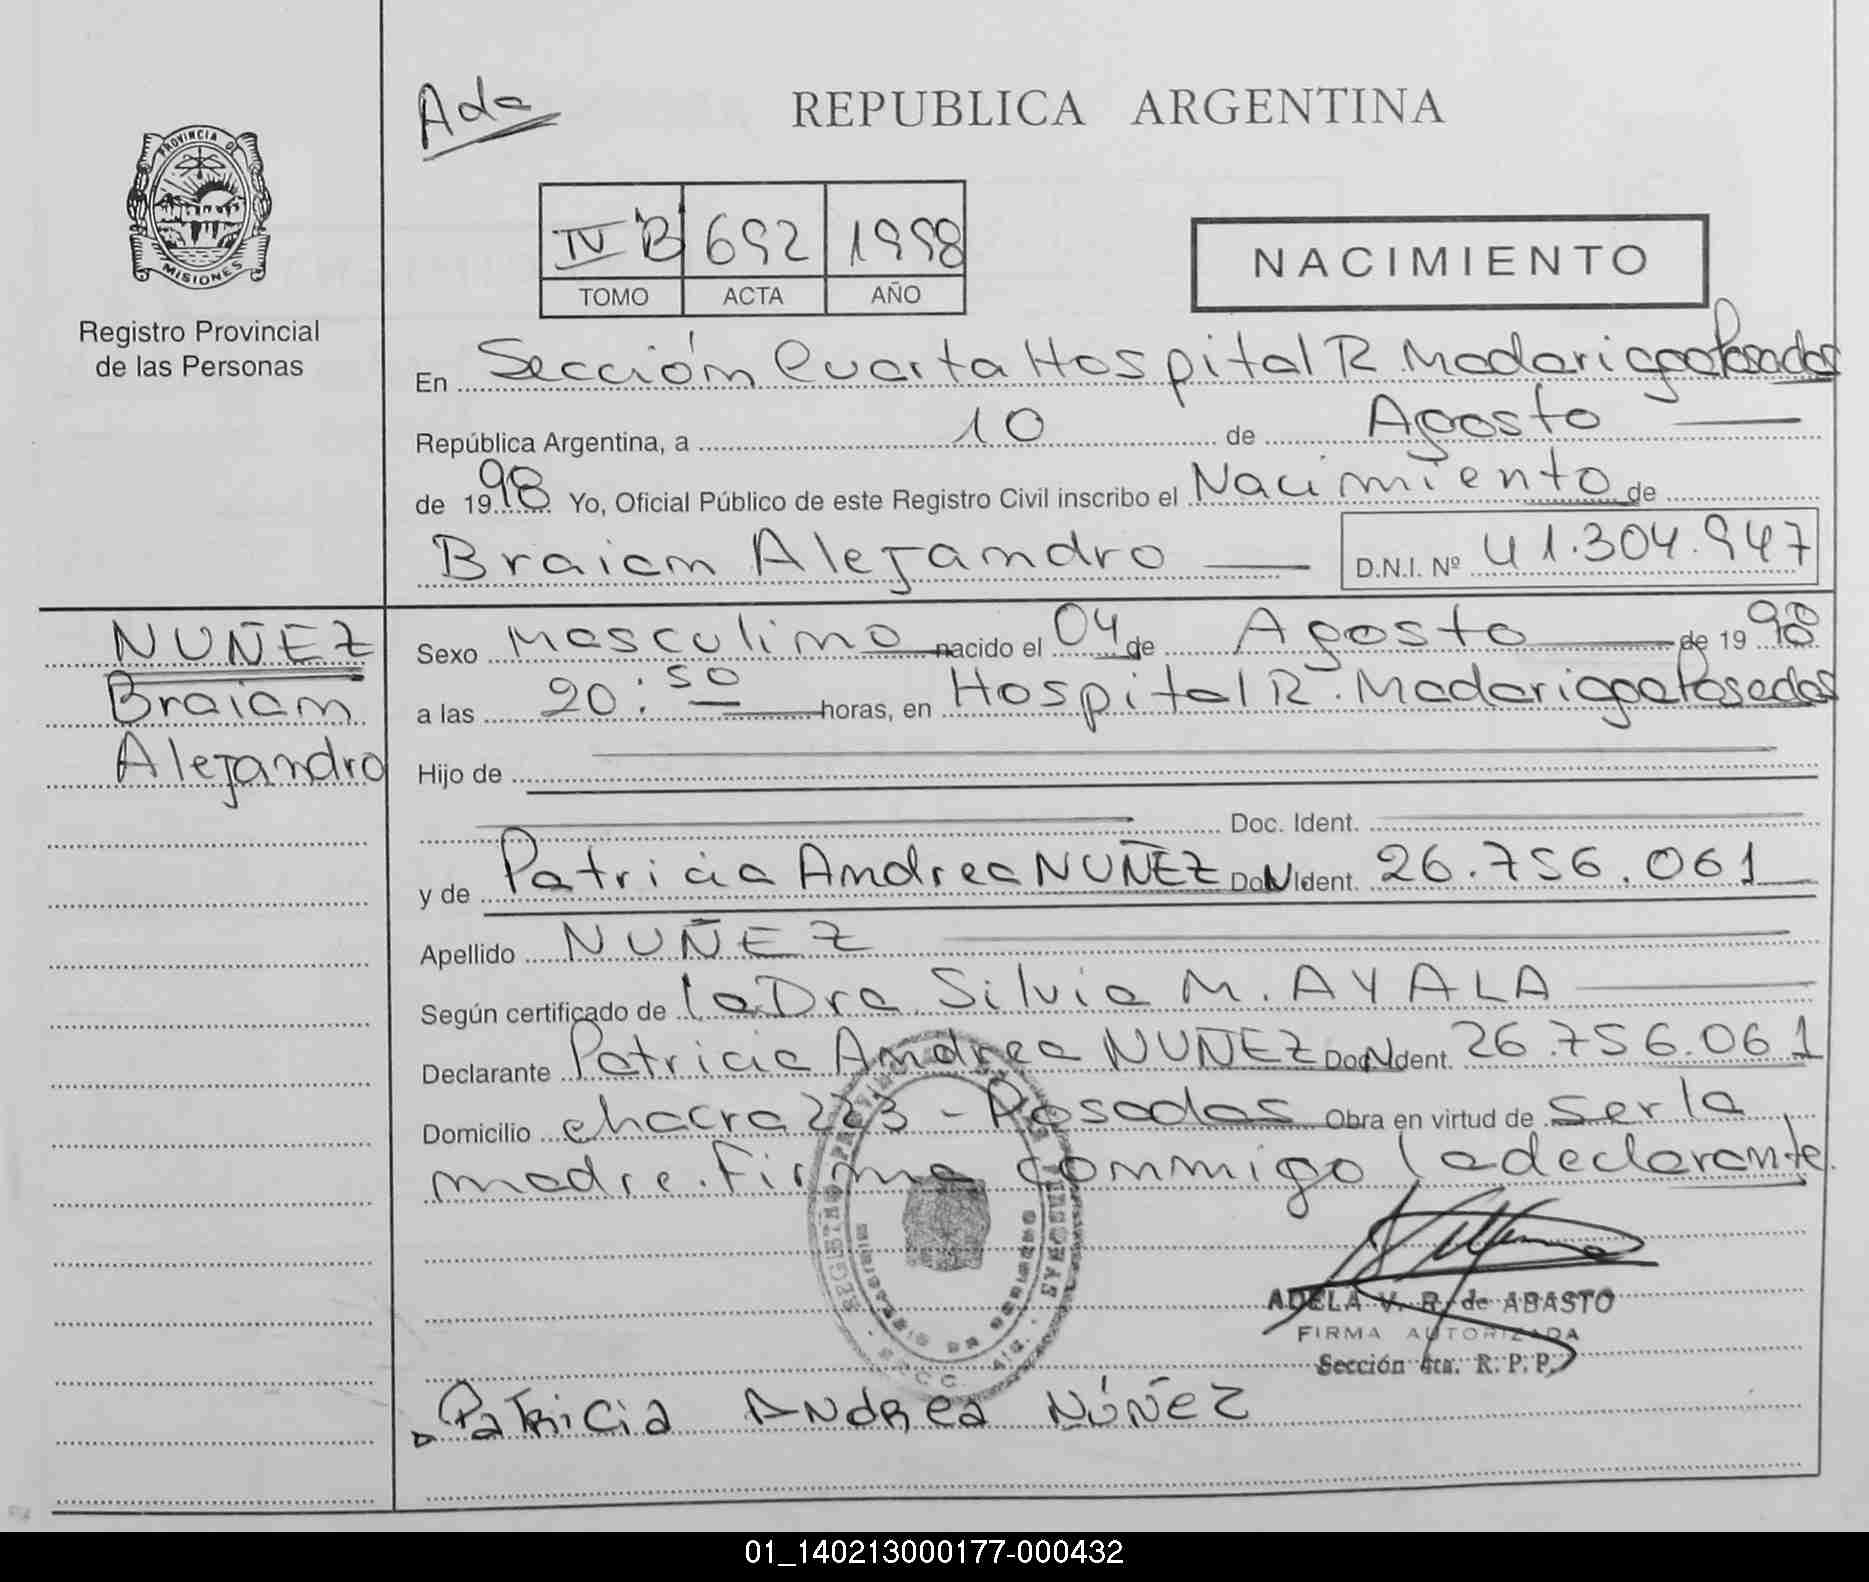 Ada
REPUBLICA ARGENTINA
PROVINCIA DE
MISIONES
Registro Provincial
de las Personas
IV B 692 1998
TOMO ACTA AÑO
NACIMIENTO
En Sección Cuarta Hospital R. Madariaga Posadas
República Argentina, a 10 de Agosto
de 1998 Yo, Oficial Público de este Registro Civil inscribo el Nacimiento de
Braian Alejandro D.N.I. Nº 41.304.947
NUÑEZ
Braian
Alejandro
Sexo Masculino nacido el 04 de Agosto de 1998
a las 20:50 horas, en Hospital R. Madariaga Posadas
Hijo de
Doc. Ident.
y de Patricia Andrea NUÑEZ Doc. Ident. 26.756.061
Apellido NUÑEZ
Según certificado de la Dra Silvia M. AYALA
Declarante Patricia Andrea NUÑEZ Doc. Ident. 26.756.061
Domicilio chacra 223 - Posadas Obra en virtud de ser la
madre. Firma conmigo la declarante.
ADELA V. R. de ABASTO
FIRMA AUTORIZADA
Sección 4ta. R. P. P.
Patricia Andrea Núñez
01_140213000177-000432